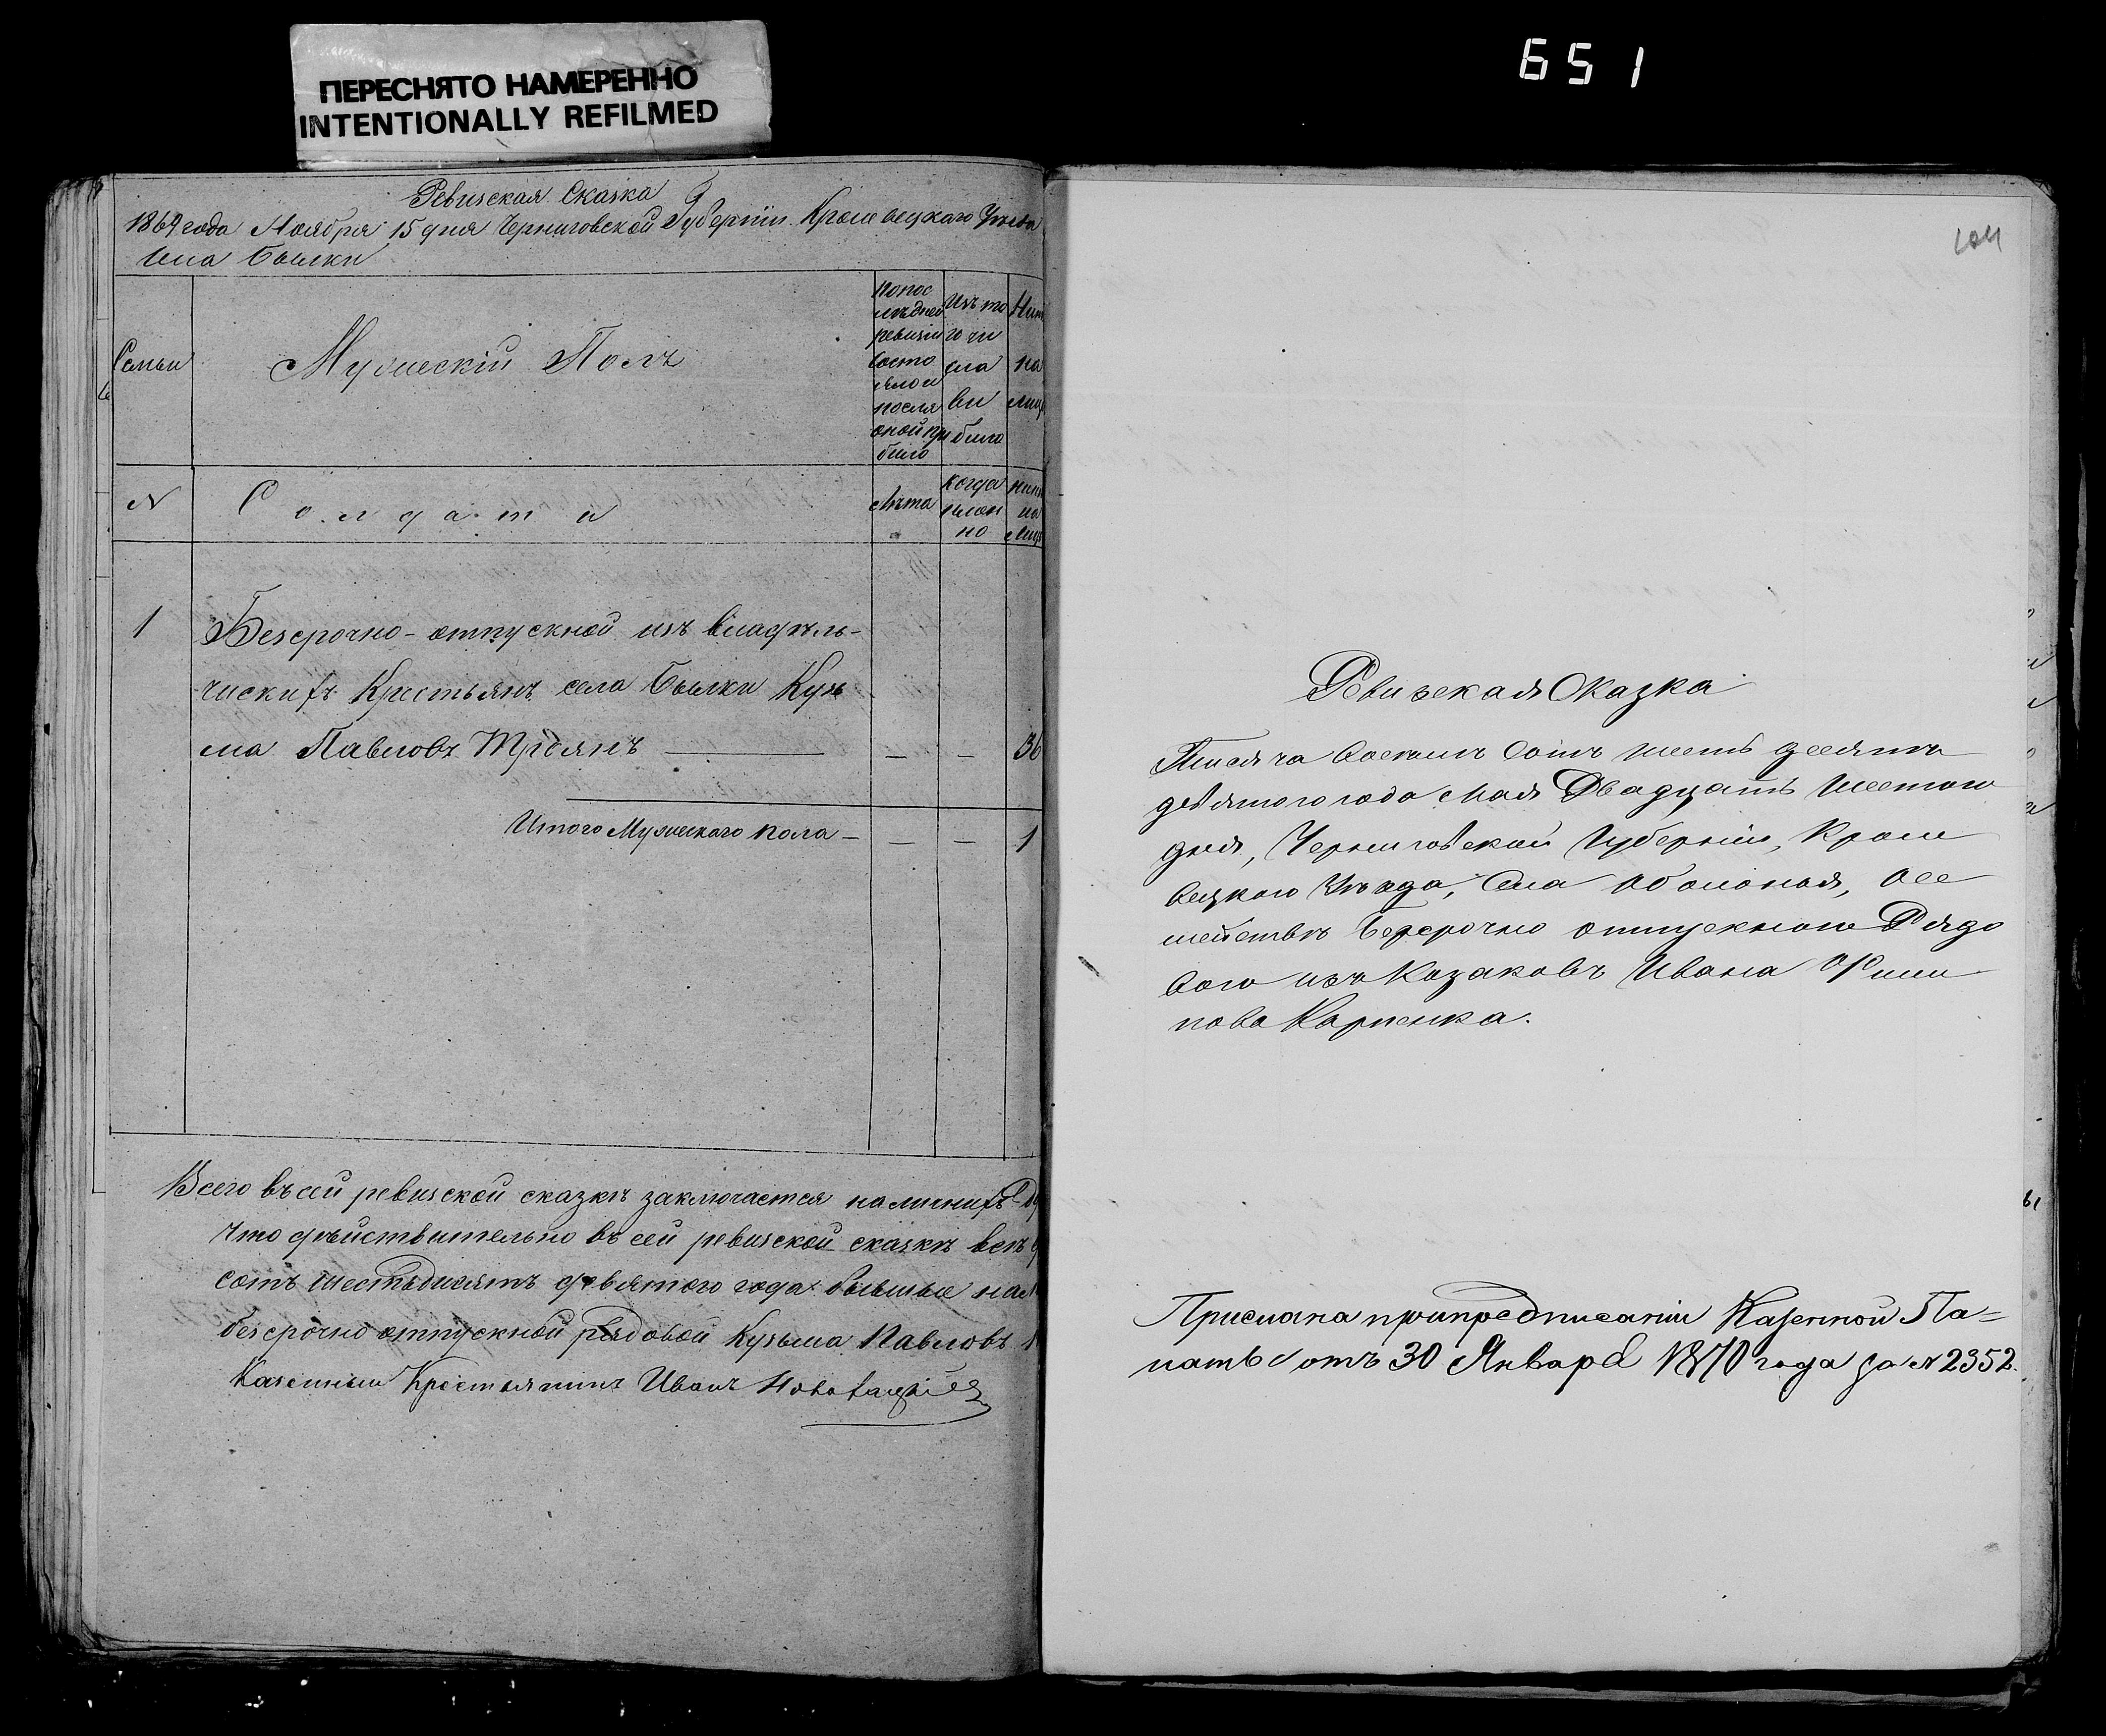 651
ПЕРЕСНЯТО НАМЕРЕННО
INTENTIONALLY REFILMED
Ревизская Сказка
1869 года Ноября 15 дня Черниговской Губерніи Кролевецкаго Уѣзда
Села Быстрики
Семьи
Мужескій Полъ
По последней ревизіи состояло и после оной прибыло
Изъ того числа выбыло
Нынѣ на лицо
N
Солдаты
Лѣта
Когда именно
Нынѣ на лицо
1
Безсрочно-отпускной изъ владѣль-
ческихъ Крестьянъ села Кузь
ма Павловъ Троянъ — — 36
Итого Мужескаго пола — — — 1
Всего въ сей ревизской сказкѣ заключается наличныхъ
Что дѣйствительно въ сей ревизской сказкѣ всѣ
сотъ шестьдесятъ девятого года бывшые на
безсрочно отпускной рядовой Кузьма Павловъ
Казенный Крестьянинъ Иванъ
Ревизская Сказка
Тысяча Восемь Сотъ шесть десятъ
девятого года Мая Двадцать Шестого
дня, Черниговской Губерніи, Кроле
вецкого Уѣзда, Села Оболонья, о се
мействѣ безсрочно отпускного Рядо
вого изъ Козаковъ Ивана
пова Карпенка.
Прислана при предписаніи Казенной Па=
латы отъ 30 Января 1870 года за N 2352.